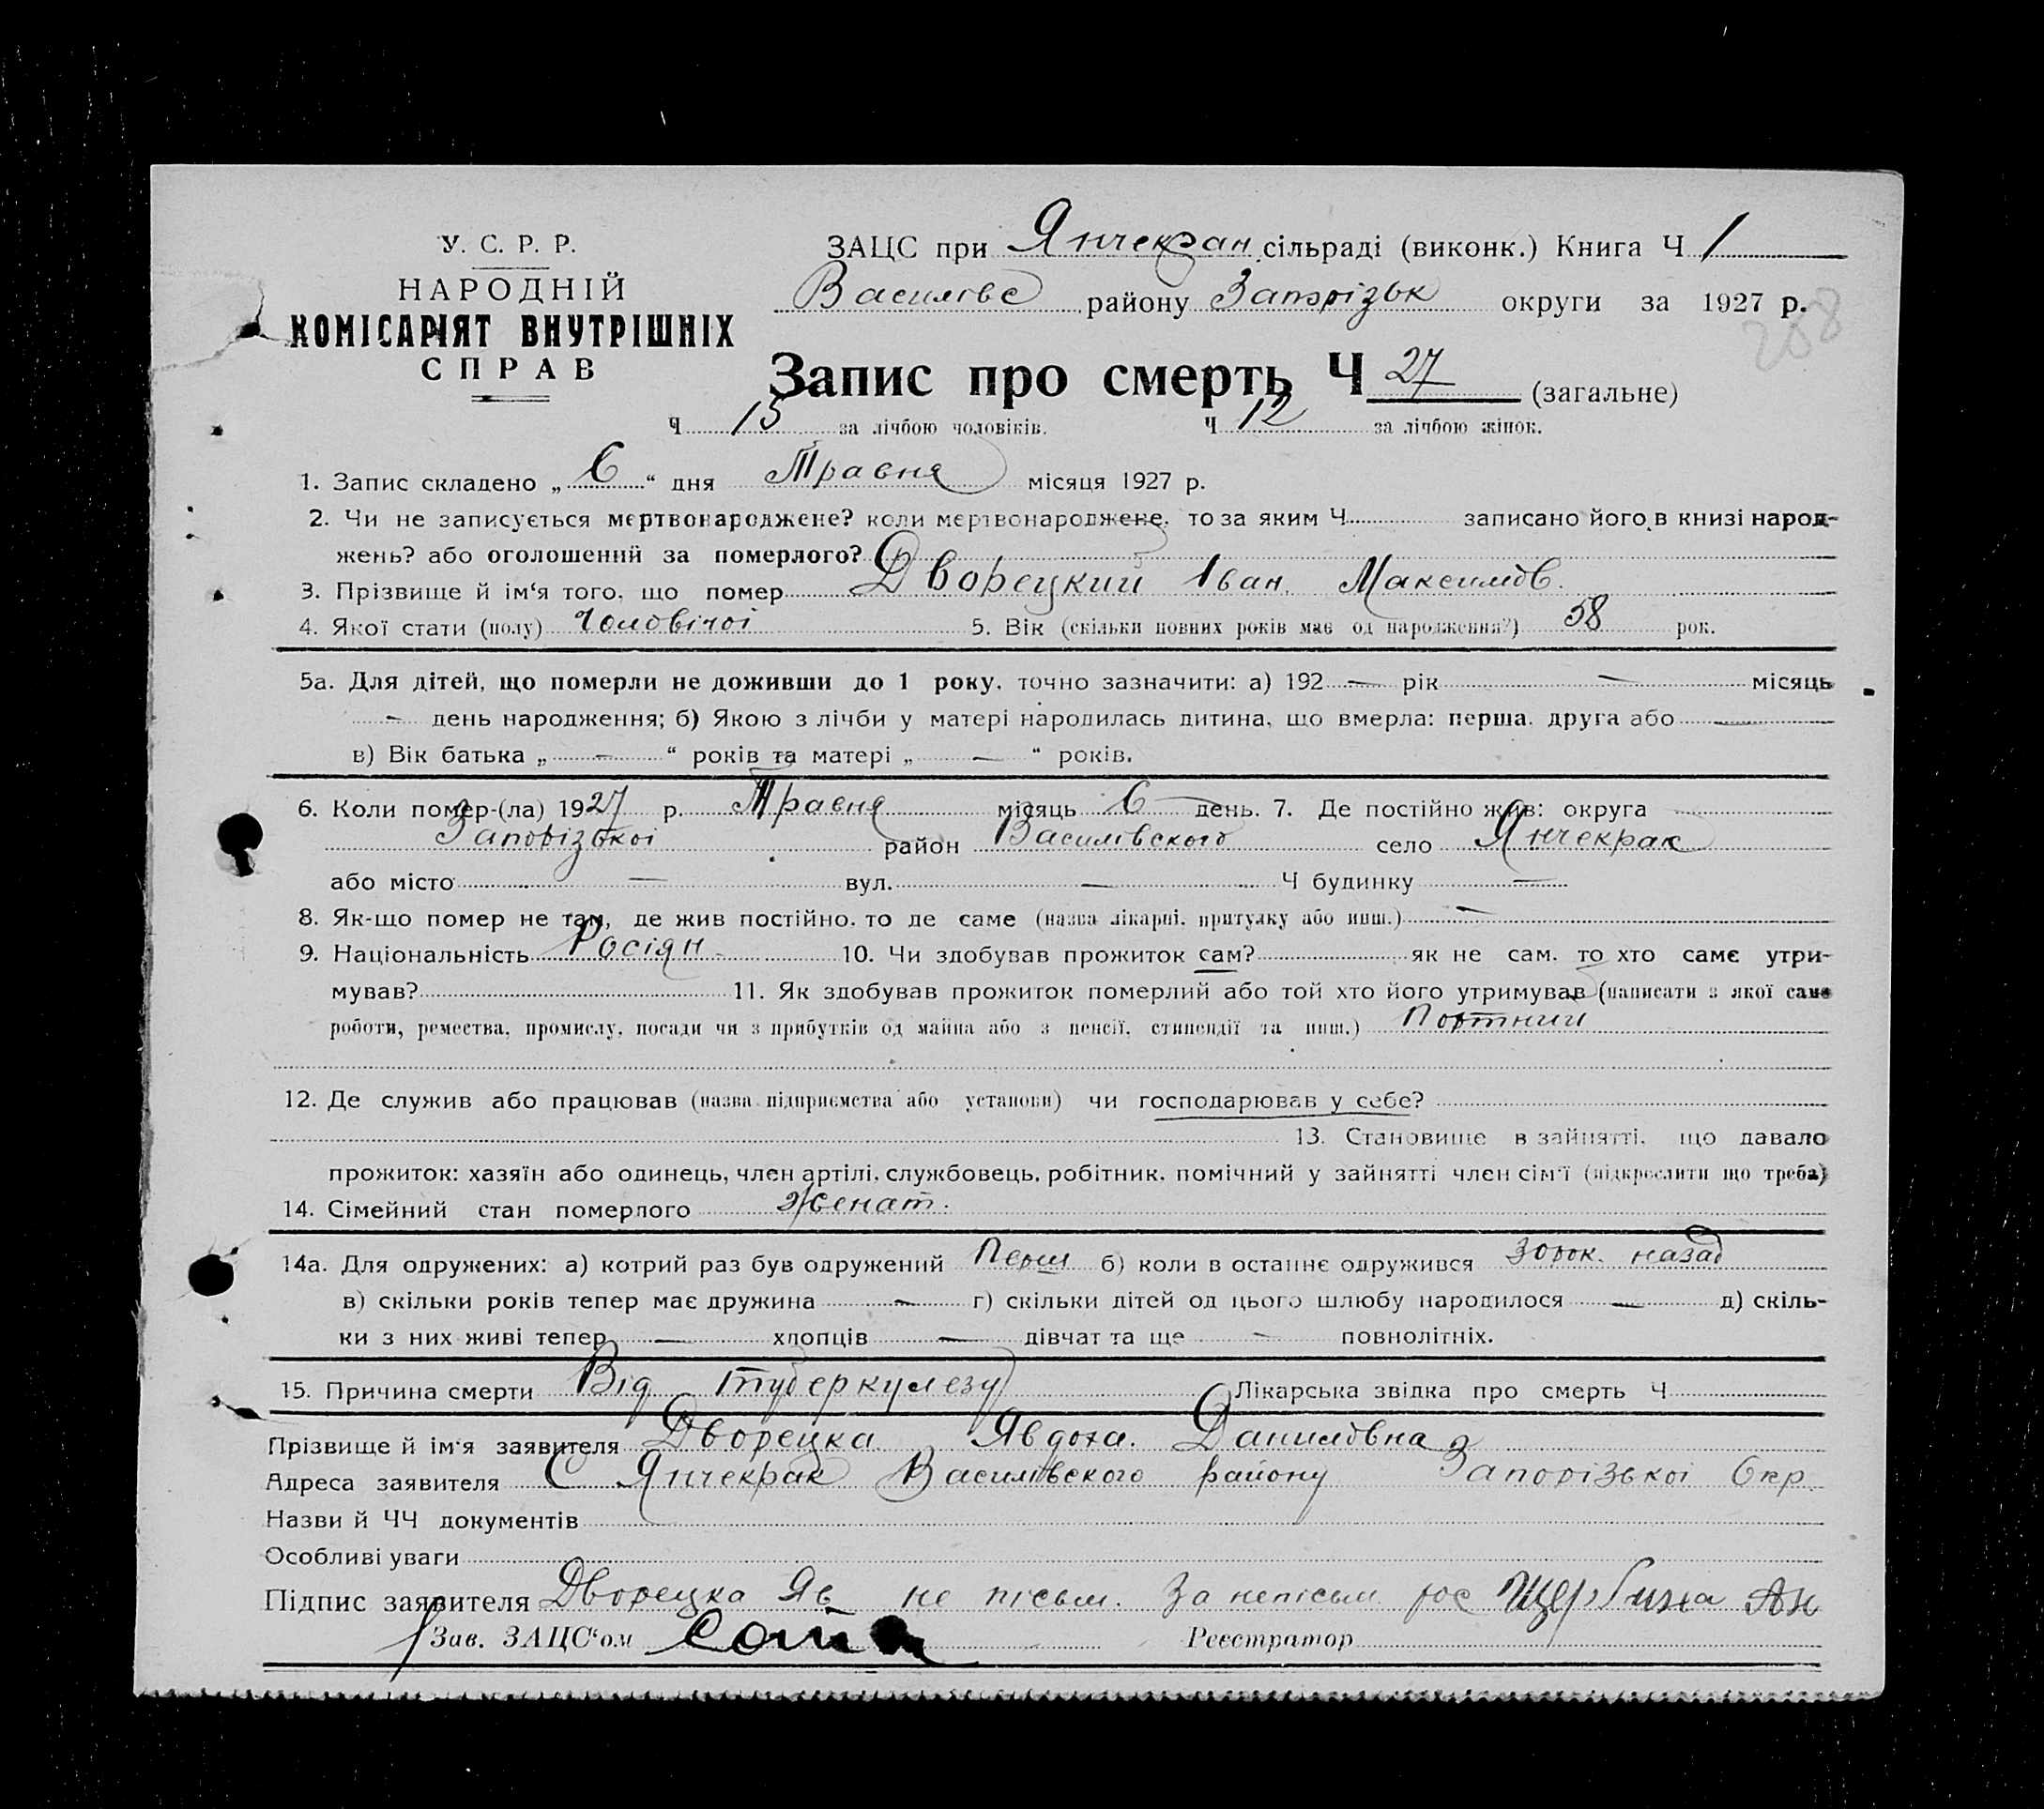 У. С. Р. Р.
НАРОДНІЙ
КОМІСАРІЯТ ВНУТРІШНІХ
СПРАВ
ЗАЦС при Янчекран сільраді (виконк.) Книга Ч 1
Василівс району Запорізьк округи за 1927 р.
268
Запис про смерть Ч 27 (загальне)
Ч 15 за лічбою чоловіків. Ч 12 за лічбою жінок.
1. Запис складено „ 6 “ дня Травня місяця 1927 р.
2. Чи не записується мертвонароджене? коли мертвонароджене, то за яким Ч записано його в книзі народ-
жень? або оголошений за померлого?
3. Прізвище й ім‘я того, що помер Дворецкий Іван Максимов.
4. Якої стати (полу) Чоловічоі 5. Вік (скільки повних років має од народження?) 58 рок.
5а. Для дітей, що померли не доживши до 1 року, точно зазначити: а) 192 — рік — місяць
— день народження; б) Якою з лічби у матері народилась дитина, що вмерла: перша, друга або —
в) Вік батька „ — “ років та матері „ — “ років.
6. Коли помер-(ла) 1927 р. Травня місяць 6 день. 7. Де постійно жив: округа
Запорізькоі район Василівского село Янчекрак
або місто — вул. — Ч будинку —
8. Як-що помер не там, де жив постійно, то де саме (назва лікарні, притулку або инш.) —
9. Національність Росіян 10. Чи здобував прожиток сам? як не сам, то хто саме утри-
мував? 11. Як здобував прожиток померлий або той хто його утримував (написати з якої саме
роботи, ремества, промислу, посади чи з прибутків од майна або з пенсії, стипендії та инш.) Портний
12. Де служив або працював (назва підприємства або установи) чи господарював у себе?
13. Становище в зайнятті, що давало
прожиток: хазяїн або одинець, член артілі, службовець, робітник, помічний у зайнятті член сім‘ї (підкреслити що треба)
14. Сімейний стан померлого Женат.
14а. Для одружених: а) котрий раз був одружений Перш б) коли в останнє одружився 30 рок. назад
в) скільки років тепер має дружина — г) скільки дітей од цього шлюбу народилося — д) скіль-
ки з них живі тепер — хлопців — дівчат та ще — повнолітніх.
15. Причина смерти Від туберкулезу Лікарська звідка про смерть Ч
Прізвище й ім‘я заявителя Дворецка Явдоха Даниловна
Адреса заявителя С Янчекрак Василівского району Запорізькоі Окр.
Назви й ЧЧ документів
Особливі уваги
Підпис заявителя Дворецка Яв не письм. За неписьм рос Щербина Ан
Зав. ЗАЦС‘ом Реєстратор